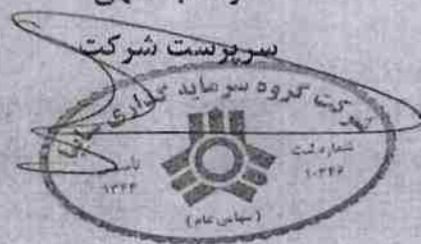 سرپرست شرکت
شرکت گروه سرمایه گذاری سایپا
شماره ثبت
۱۰۳۴۶
تاسیس
۱۳۶۴
(سهامی عام)